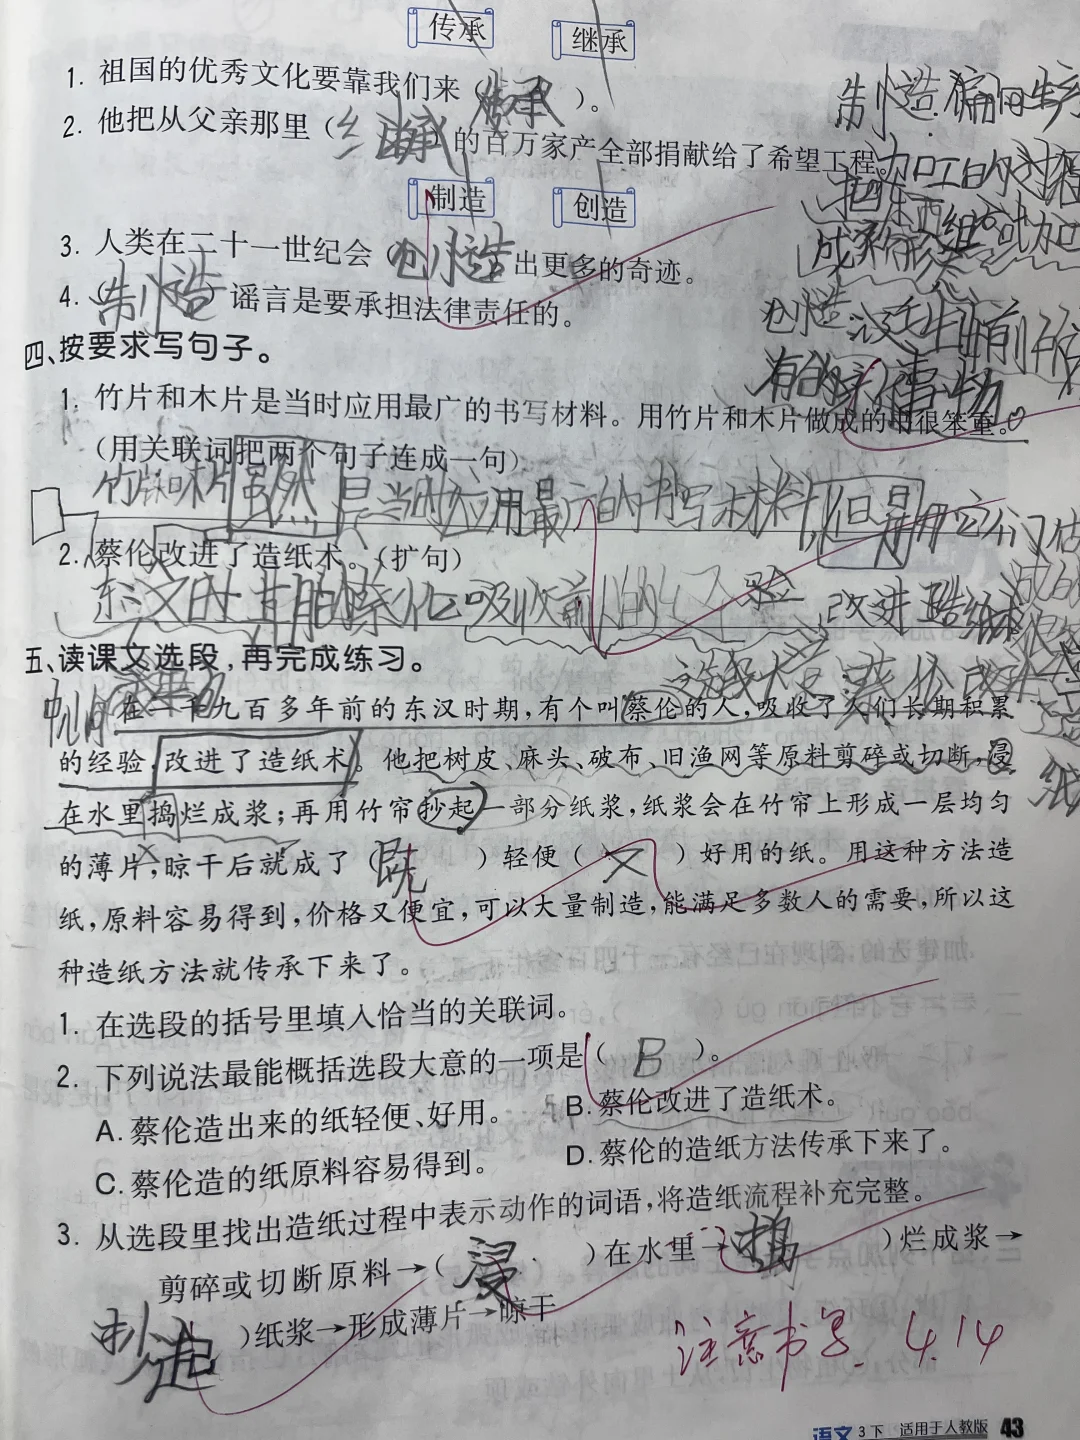 传承 继承
1. 祖国的优秀文化要靠我们来(传承)。
2. 他把从父亲那里(继承)的百万家产全部捐献给了希望工程。
制造 创造
3. 人类在二十一世纪会(创造)出更多的奇迹。
4. (制造)谣言是要承担法律责任的。
制造:偏向生产
加工的过程
把东西组
成
创造:没生出前所
有的事物
四、按要求写句子。
1. 竹片和木片是当时应用最广的书写材料。用竹片和木片做成的书很笨重。
(用关联词把两个句子连成一句)
竹片和木片虽然是当时应用最广的书写材料,但是用它们做成的很笨
2. 蔡伦改进了造纸术。(扩句)
东汉时期的蔡伦吸收前人的经验改进造纸术
五、读课文选段,再完成练习。
选段大意:蔡伦改进造纸
在一千九百多年前的东汉时期,有个叫蔡伦的人,吸收了人们长期积累
的经验,改进了造纸术。他把树皮、麻头、破布、旧渔网等原料剪碎或切断,浸
在水里捣烂成浆;再用竹帘抄起一部分纸浆,纸浆会在竹帘上形成一层均匀
的薄片,晾干后就成了(既)轻便(又)好用的纸。用这种方法造
纸,原料容易得到,价格又便宜,可以大量制造,能满足多数人的需要,所以这
种造纸方法就传承下来了。
1. 在选段的括号里填入恰当的关联词。
2. 下列说法最能概括选段大意的一项是(B)。
A. 蔡伦造出来的纸轻便、好用。 B. 蔡伦改进了造纸术。
C. 蔡伦造的纸原料容易得到。 D. 蔡伦的造纸方法传承下来了。
3. 从选段里找出造纸过程中表示动作的词语,将造纸流程补充完整。
剪碎或切断原料→(浸)在水里→(捣)烂成浆→
(抄起)纸浆→形成薄片→晾干
注意书写. 4.14
语文 3下 适用于人教版 43